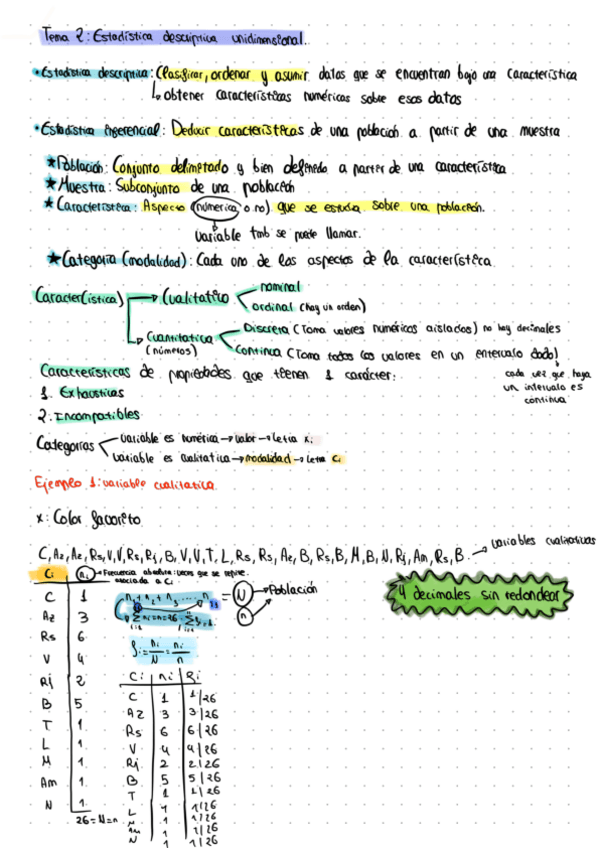 Tema 2: Estadística descriptiva unidimensional.
• Estadística descriptiva: Clasificar, ordenar y asumir datos que se encuentran bajo una característica
↳ obtener características numéricas sobre esos datos
• Estadística inferencial: Deducir características de una población a partir de una muestra
★ Población: Conjunto delimitado y bien definido a partir de una característica
★ Muestra: Subconjunto de una población
★ Característica: Aspecto (númerica o no) que se estudia sobre una población.
variable tmb se puede llamar.
★ Categoría (modalidad): Cada uno de los aspectos de la característica
Caracter(ística) → Cualitativo
nominal
ordinal (hay un orden)
→ Cuantitativa (números)
Discreta (Toma valores numéricos aislados) no hay decimales
Continua (Toma todos los valores en un intervalo dado)
cada vez que haya
un intervalo es
continua
Características de propiedades que tienen 1 carácter:
1. Exhaustivas
2. Incompatibles
Categorías
variable es numérica → valor → letra xi
variable es cualitativa → modalidad → letra Ci
Ejemplo 1: variable cualitativa
x: Color favorito
C, Az, Az, Rs, V, V, Rs, Rj, B, V, V, T, L, Rs, Rs, Az, B, Rs, B, M, B, N, Rj, Am, Rs, B → variables cualitativas
Ci ni → Frecuencia absoluta: veces que se repite
asociada a Ci
C 1
Az 3
Rs 6
V 4
Rj 2
B 5
T 1
L 1
M 1
Am 1
N 1
26 = N = n
n1 + n2 + n3 ..... ni = N → Población
n
fi = ni/N = ni/n
4 decimales sin redondear
Ci ni fi
C 1 1/26
Az 3 3/26
Rs 6 6/26
V 4 4/26
Rj 2 2/26
B 5 5/26
T 1 1/26
L 1 1/26
M 1 1/26
Am 1 1/26
N 1 1/26